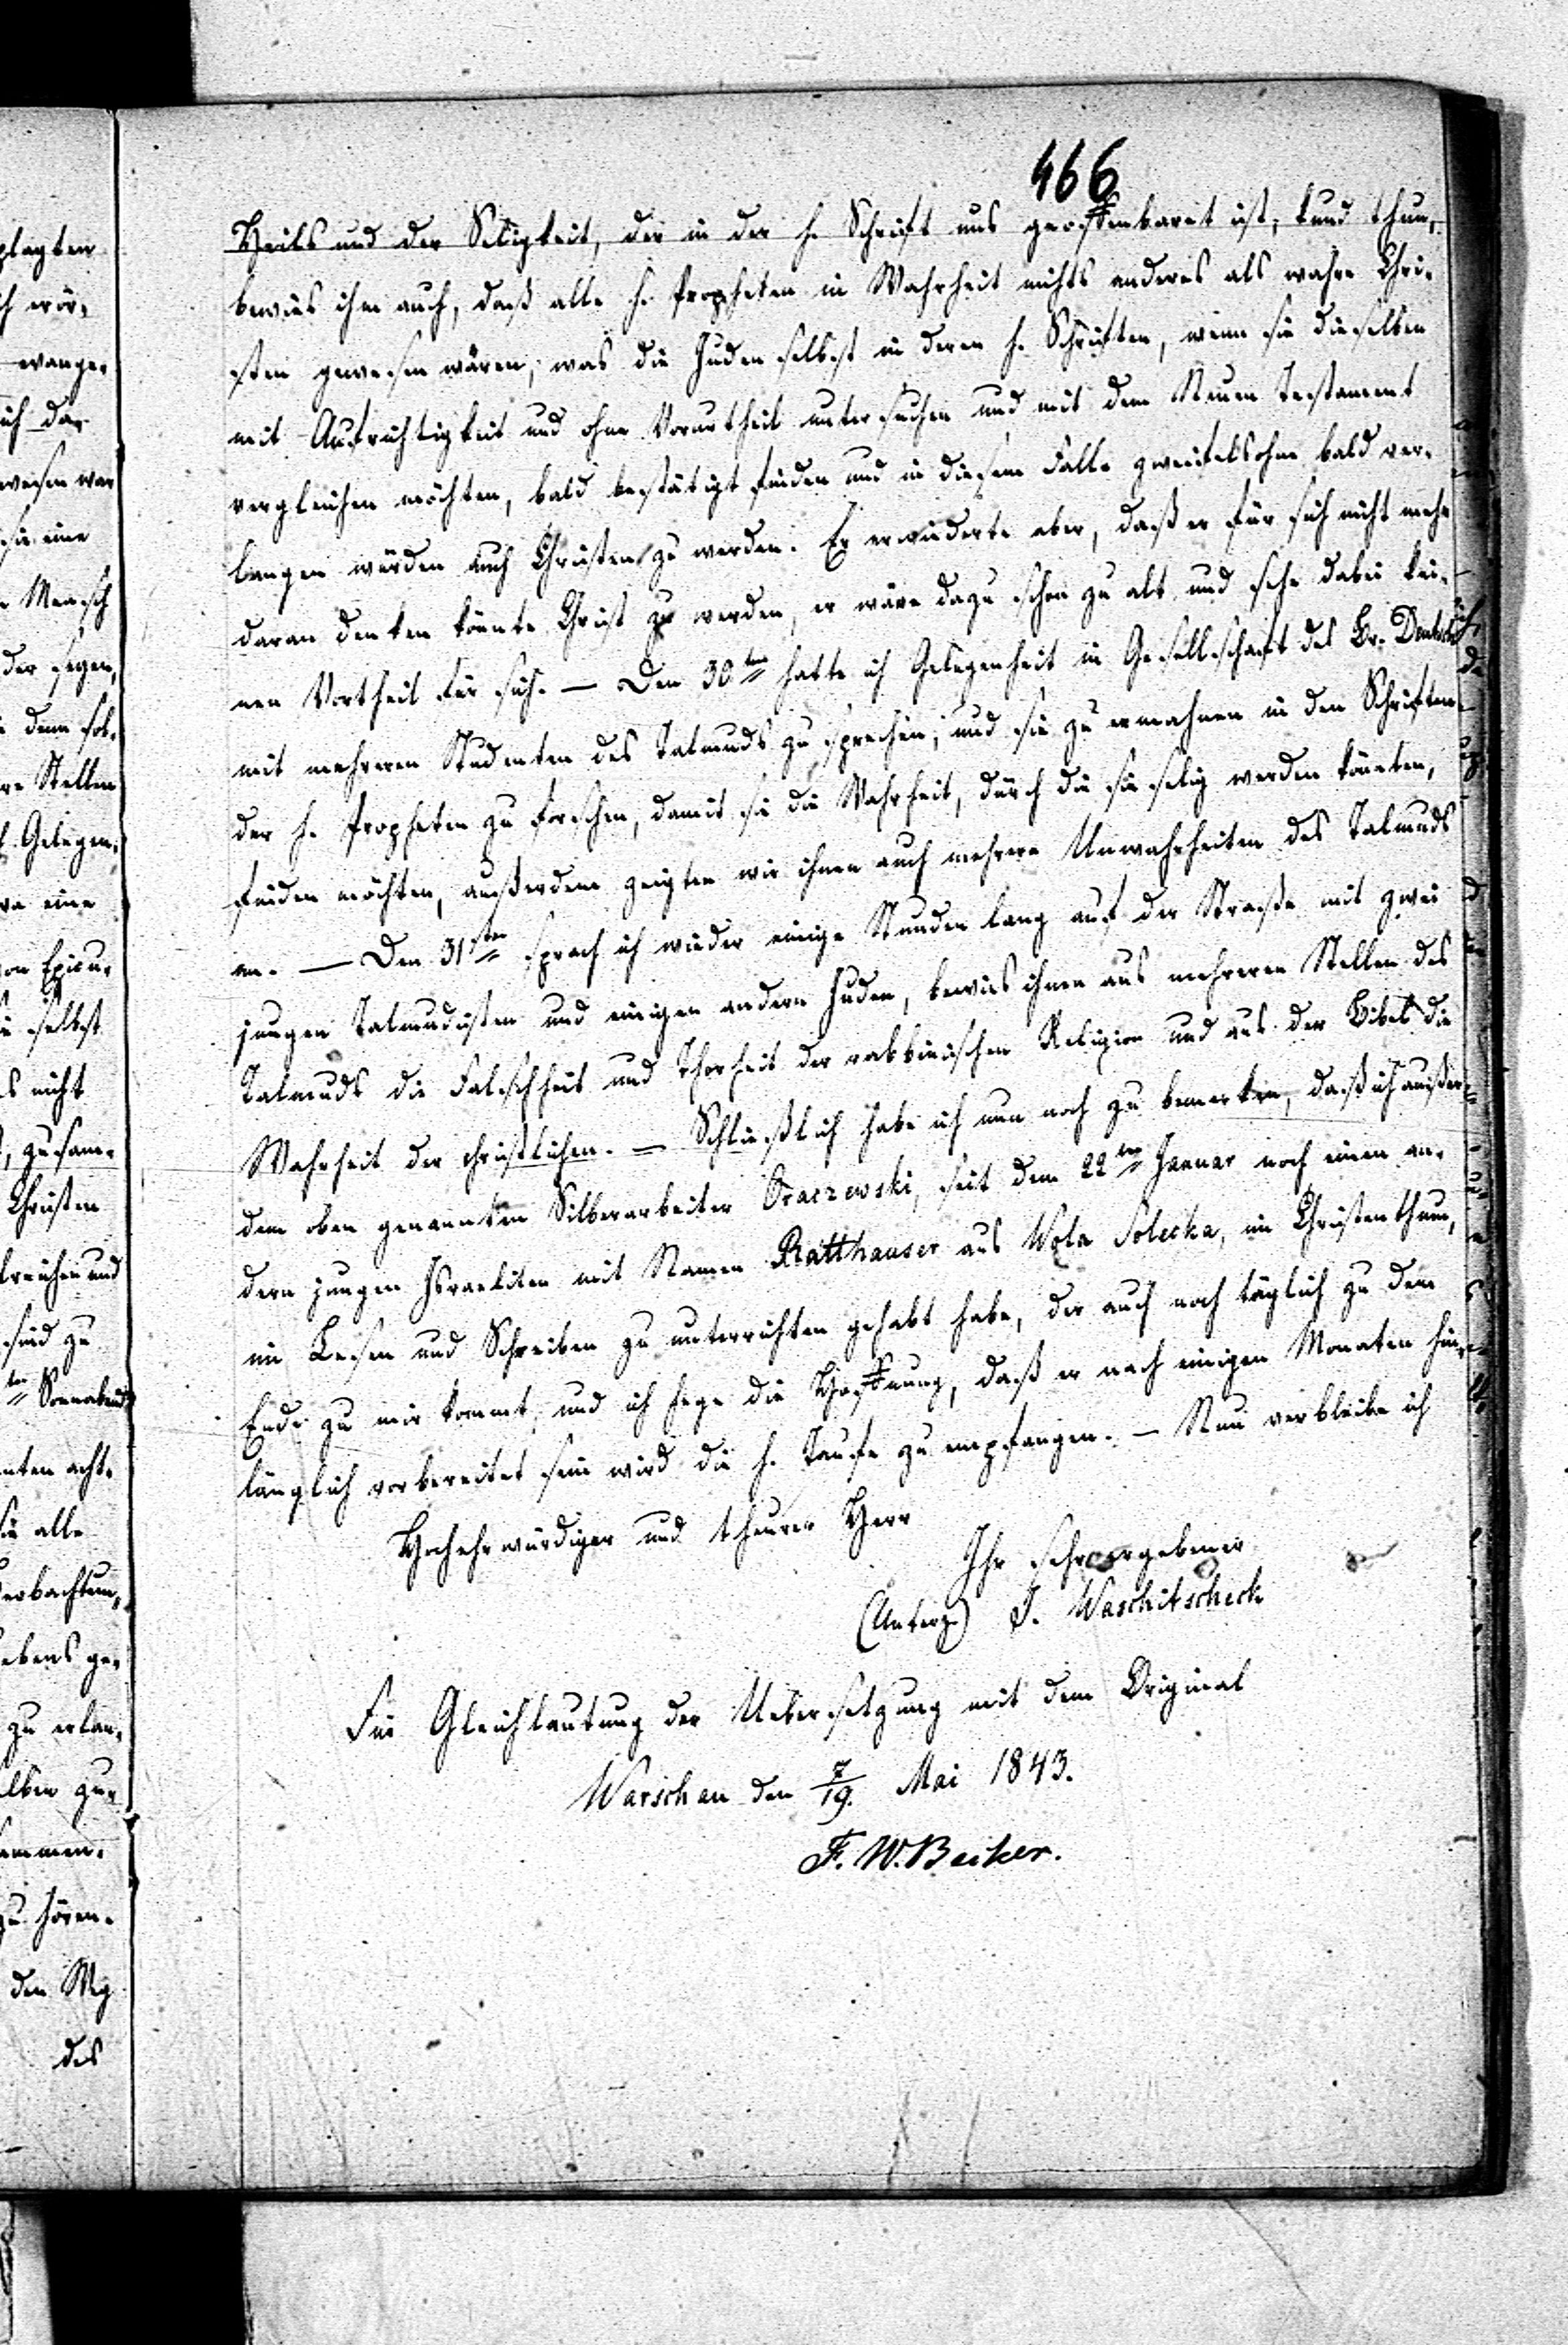 466
Heils und der Seligkeit, der in der h. Schrift uns geoffenbaret ist, kund thun,
bewies ihm auch, daß alle h. Propheten in Wahrheit nichts anderes als wahre Chri-
sten gewesen wären, was die Juden selbst in deren h. Schriften, wenn sie dieselben
mit Aufrichtigkeit und ohne Vorurtheil untersuchen und mit dem Neuen Testament
vergleichen möchten, bald bestätigt finden und in diesem Falle zweifelsohne bald ver-
langen würden auch Christen zu werden. Er erwiederte aber, daß er für sich nicht mehr
daran denken könnte Christ zu werden, er wäre dazu schon zu alt und sehe dabei kei-
nen Vortheil für sich. — Den 30ten hatte ich Gelegenheit in Gesellschaft des Br. Deutsch
mit mehreren Studenten des Talmuds zu sprechen, und sie zu ermahnen in den Schriften
der h. Propheten zu forschen, damit sie die Wahrheit, durch die sie selig werden könnten,
finden möchten, außerdem zeigten wir ihnen auch mehrere Unwahrheiten des Talmuds
an. — Den 31sten sprach ich wieder einige Stunden lang auf der Straße mit zwei
jungen Talmudisten und einigen andern Juden, bewies ihnen aus mehreren Stellen des
Talmuds die Falschheit und Thorheit der rabbinischen Religion und aus der Bibel die
Wahrheit der christlichen. — Schließlich habe ich nun noch zu bemerken, daß ich außer
dem oben genannten Silberarbeiter Oraczewski, seit dem 22ten Januar noch einen an-
dern jungen Israeliten mit Namen Ratthauser aus Wola Solecka, im Christenthum,
im Lesen und Schreiben zu unterrichten gehabt habe, der auch noch täglich zu dem
Ende zu mir kommt, und ich hege die Hoffnung, daß er nach einigen Monaten hin-
länglich vorbereitet sein wird die h. Taufe zu empfangen. — Nun verbleibe ich
Hochehrwürdiger und theurer Herr
Ihr sehr ergebener
(Unterz) J. Waschitscheck
Für Gleichlautung der Uebersetzung mit dem Original
Warschau den 7/19. Mai 1843.
F. W. Becker.
plagten
wange-
ich da-
sie eine
Mensch
der sagen,
denn sol-
Stellen
Gelegen-
eine
von Epicu-
selbst
nicht
, zusam-
Christen
und
sind zu
ten Sonnabend
acht-
sie alle
ebens ge-
zu erlan-
zu hören.
den Weg
des